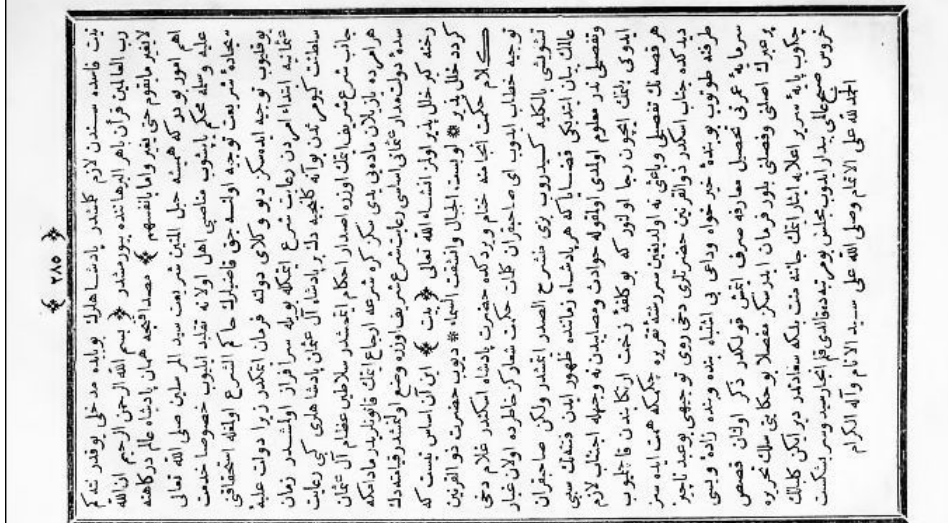 ﴿ ٢٨٥ ﴾
يت فاسده سندن لازم كلمشدر پادشاهلرك بوبابده مدخلى يوقدر نته كم
رب العالمين قرآن باهر البرهاننده بيورمشدر ﴿ بسم الله الرحمن الرحيم ان الله
لايغير مابقوم حتى يغيروا مابانفسهم ﴾ مصداقنجه هر آن پادشاه عالم دركاهنه
اهم امور بودر كه هميشه حبل المتين شريعت سيد المرسلين صلى الله تعالى
عليه وسلمه محكم ياپشوب مناصبى اهل اولانه تقليد ايليوب خصوصا خدمت
سجادۀ شريعت توجه اولنسه حق قاضيلرك حاكم الشرع اولمغه استحقاقى
يوقليوب توجيه ايده سكز ديو وكلاى دولته فرمان ايتمكدر زيرا دولت عليۀ
عثمانيه ابتداء امردن رعايت شرع ايتمكله بويله سرافراز اولمشدر زمان
سلطنت كيومرثدن بوآنه كلنجيه دك بر پادشاه آل عثمان پادشاهلرى كبى رعايت
جانب شرع شريف ايتمك اوزره اصدار احكام ايتمشدر سلاطين عظام آل عثمان
هر امرده يازيلان ماده يى يدى سكز كره شرعه ارجاع ايتمك قانونلريدر مادامكه
سدۀ دولتمدار عثمانى اساسى رعايت شرع شريف اوزره وضع اولنمشدر قيامته دك
رخنه كر خلل پذير اولمز انشاء الله تعالى ﴿ بيت ﴾ اين آن اساس نيست كه
كردد خلل پذير * لوبست الجبال وانشقت السماء * ديوب حضرت ذو القرنين
كلام حكمت انجامنه ختام ويردكده حضرت پادشاه اسكندر غلام دخى
توجيه خطاب ايدوب اى صاحبقران كلمات حكمت شعاركز خاطرده اولان غبار
تشويشى بالكليه كيدروب بزى منشرح الصدر ايتمشدر ولكن صاحبقران
عالمك بيان ايتديكى قضايا كه هر پادشاه زماننده ظهور ايدن فتنه نك سببى
وتفصيلى ندر معلوم اولدى اولمقوله حوادث ومصايبدن نه وجهله اجتناب لازم
ايدوكى بيلنمك ايچون رجا اولنور كه بو كلفتۀ زحمت ارتكابندن قاچنيوب
هر قصه نك تفصيلى وباعثى نه اولديغين سررشتۀ تقريره چكمكه همت ايده سز
ديدكده جناب اسكندر ذوالقرنين حضرتلرى دخى روى توجهى بوعبد ناچيز
طرفنه طوتوب بو بندۀ خير خواه وداعى بى اشتباه بنده وبنده زاده ويسى
سرمايۀ عمرنى تحصيل معارفه صرف ايتمش قولكدر ذكر اولنان قصص
پرعبرك اصلنى وفصلنى بيلور فرمان ايدرسكز مفصلا بو حكايتى سلك تحريره
چكوب پايۀ سرير اعلايه ايثار ايتمك جاننه منت بلكه سعادتدر ديرايكن كلبانك
خروس صبح عالمى بيدار ايليوب مجلس بومرتبه ده قالدى قلم اينجا رسيد وسر بشكست
الحمد لله على الاتمام وصلى الله على سيد الانام وآله الكرام